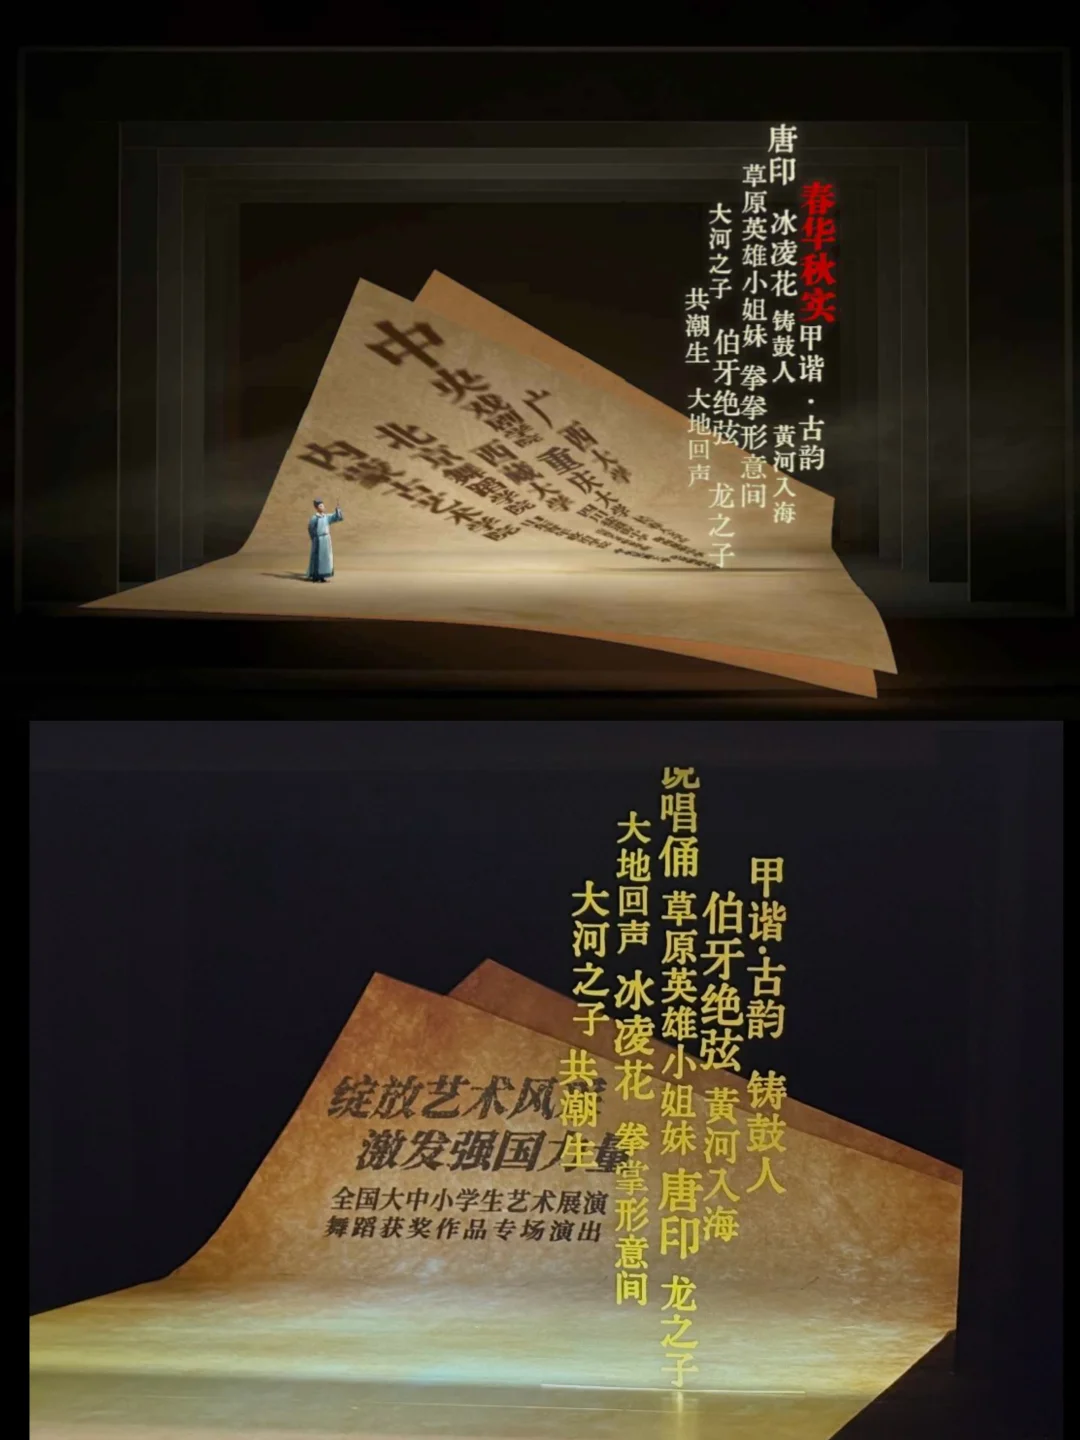 春华秋实 甲谐·古韵
唐印 冰凌花 铸鼓人 黄河入海
草原英雄小姐妹 拳拳形意间
大河之子 伯牙绝弦 龙之子
共潮生 大地回声
中央戏剧学院
广西大学
北京舞蹈学院
西藏大学
重庆大学
内蒙古艺术学院
甲谐·古韵 铸鼓人
伯牙绝弦 黄河入海
说唱俑 草原英雄小姐妹 唐印 龙之子
大地回声 冰凌花 拳掌形意间
大河之子 共潮生
绽放艺术风采
激发强国力量
全国大中小学生艺术展演
舞蹈获奖作品专场演出